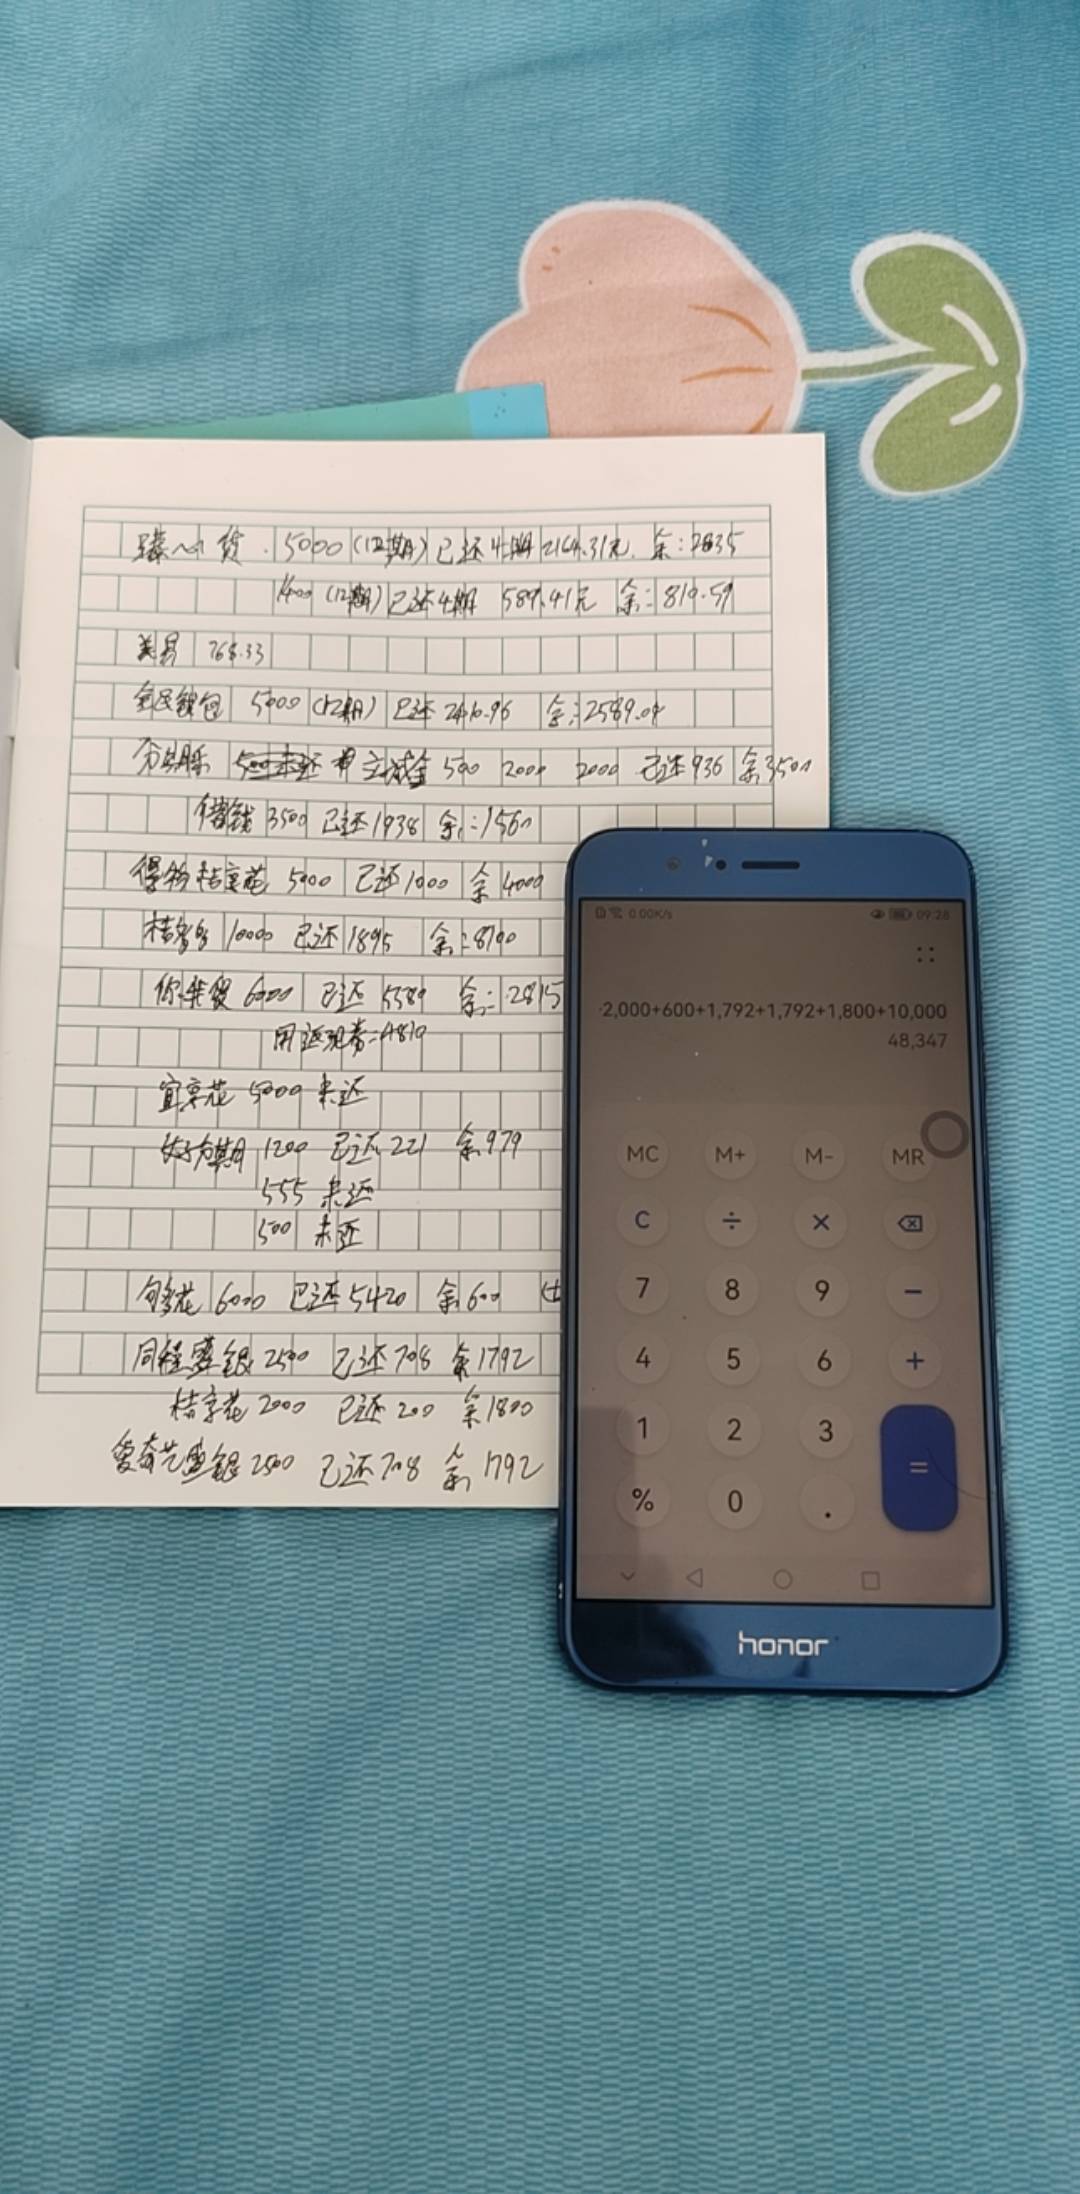 臻心贷 5000 (12期) 已还4期 2164.31元 余:2835
1400 (12期) 已还4期 589.41元 余:819.59
美易 768.33
全民钱包 5000 (12期) 已还2410.96 余:2589.04
分期乐 500 2000 2000 已还936 余3500
借钱 3500 已还1938 余:1560
得物桔享花 5000 已还1000 余4000
桔多多 10000 已还1895 余:8100
你我贷 6000 已还 余:2815
用返现券
宜享花 5000 未还
好分期 1200 已还221 余979
555 未还
500 未还
够花 6000 已还5420 余600
同程 2500 已还708 余1792
桔享花 2000 已还200 余1800
爱奇艺 2500 已还708 余1792
0.00K/s 09:28
2,000+600+1,792+1,792+1,800+10,000
48,347
MC M+ M- MR
C ÷ ×
7 8 9 −
4 5 6 +
1 2 3
% 0 . =
honor